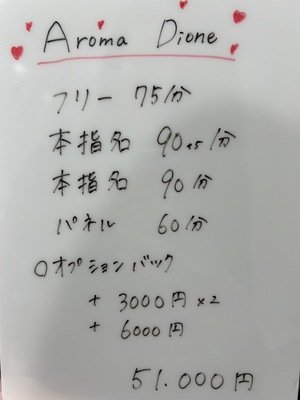 Aroma Dione
フリー 75分
本指名 90+5分
本指名 90分
パネル 60分
○オプションバック
+ 3000円×2
+ 6000円
51.000円